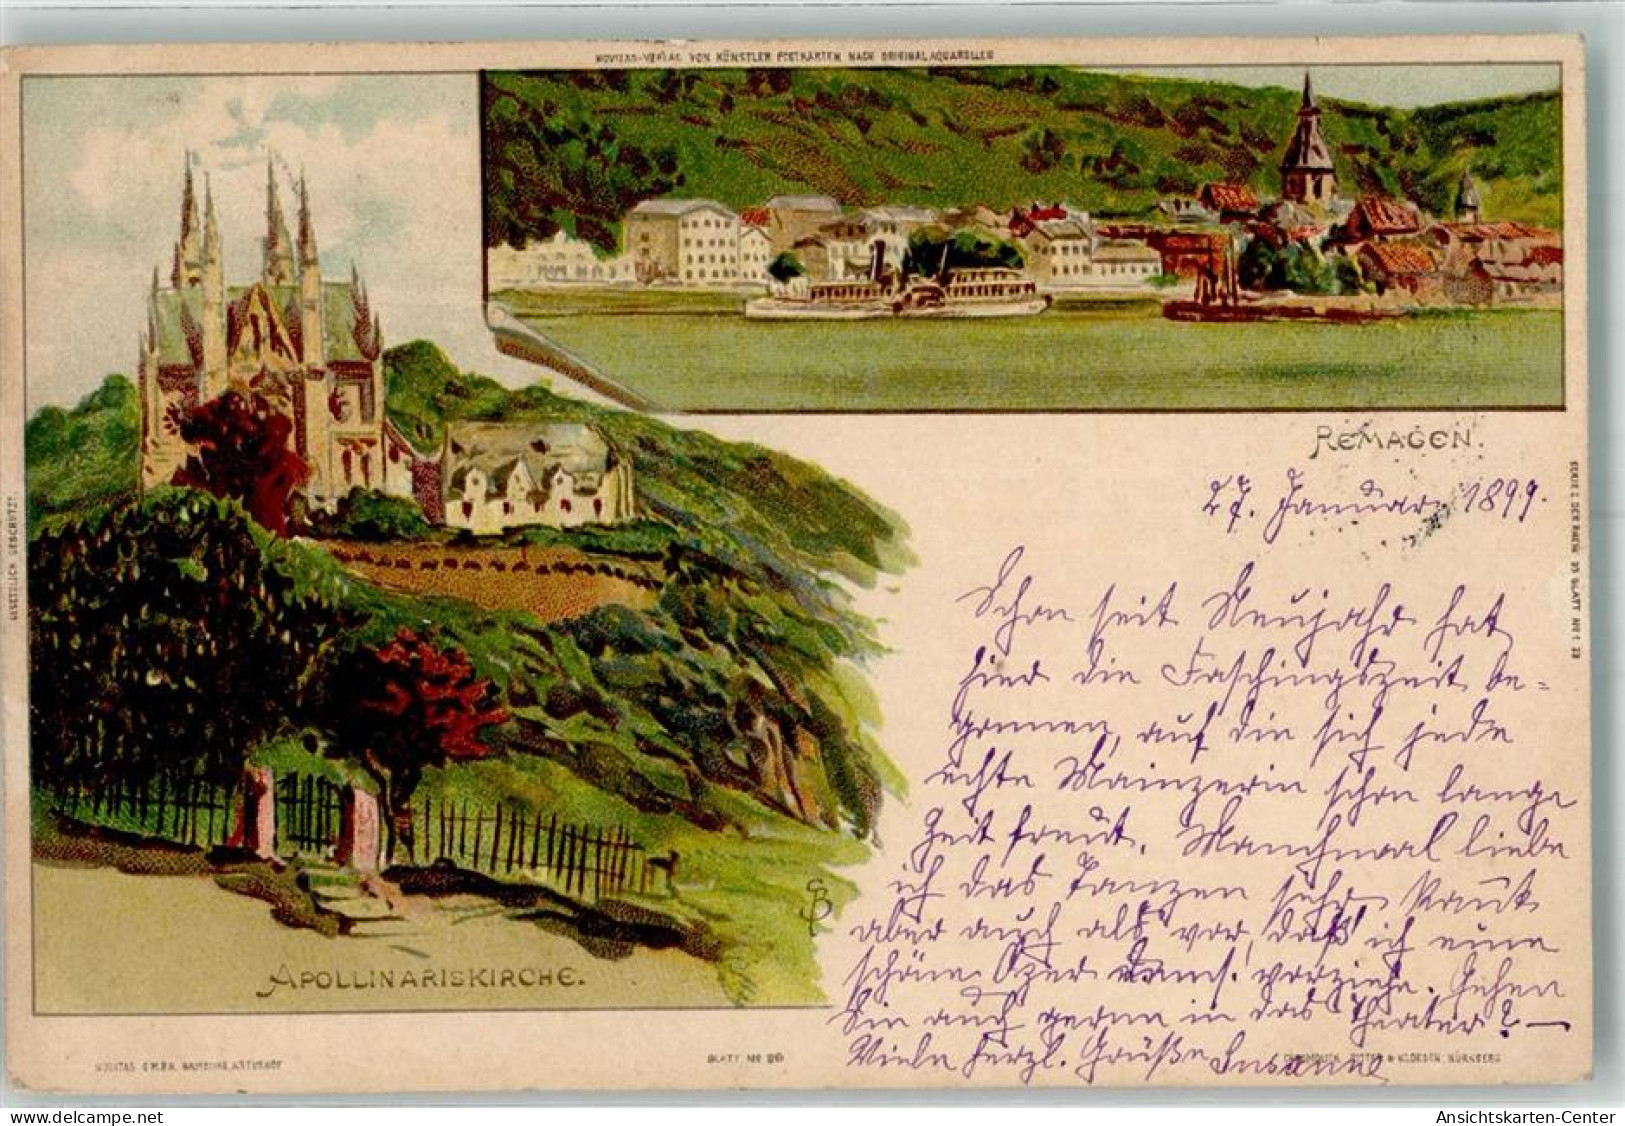 NOVITAS-VERLAG VON KÜNSTLER POSTKARTEN NACH ORIGINALAQUARELLEN
REMAGEN.
27. Januar 1899.
Schon seit Neujahr hat
hier die Faschingszeit be=
gonnen, auf die sich jede
echte Mainzerin schon lange
Zeit freut. Manchmal liebe
ich das Tanzen sehr,
aber auch als vor, daß ich eine
schöne Oper vorziehe. Gehen
Sie auch gerne in das Theater? —
Viele herzl. Grüße Susanne
APOLLINARISKIRCHE.
GESETZLICH GESCHÜTZT.
SERIE I. DER RHEIN. 30 BLATT Nº 1-
BLATT Nº 20
NOVITAS G.M.B.H.
NÜRNBERG
www.delcampe.net
Ansichtskarten-Center